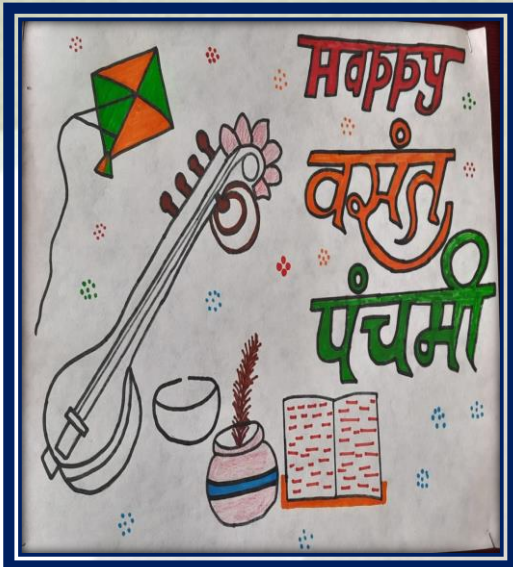 Happy
वसंत
पंचमी